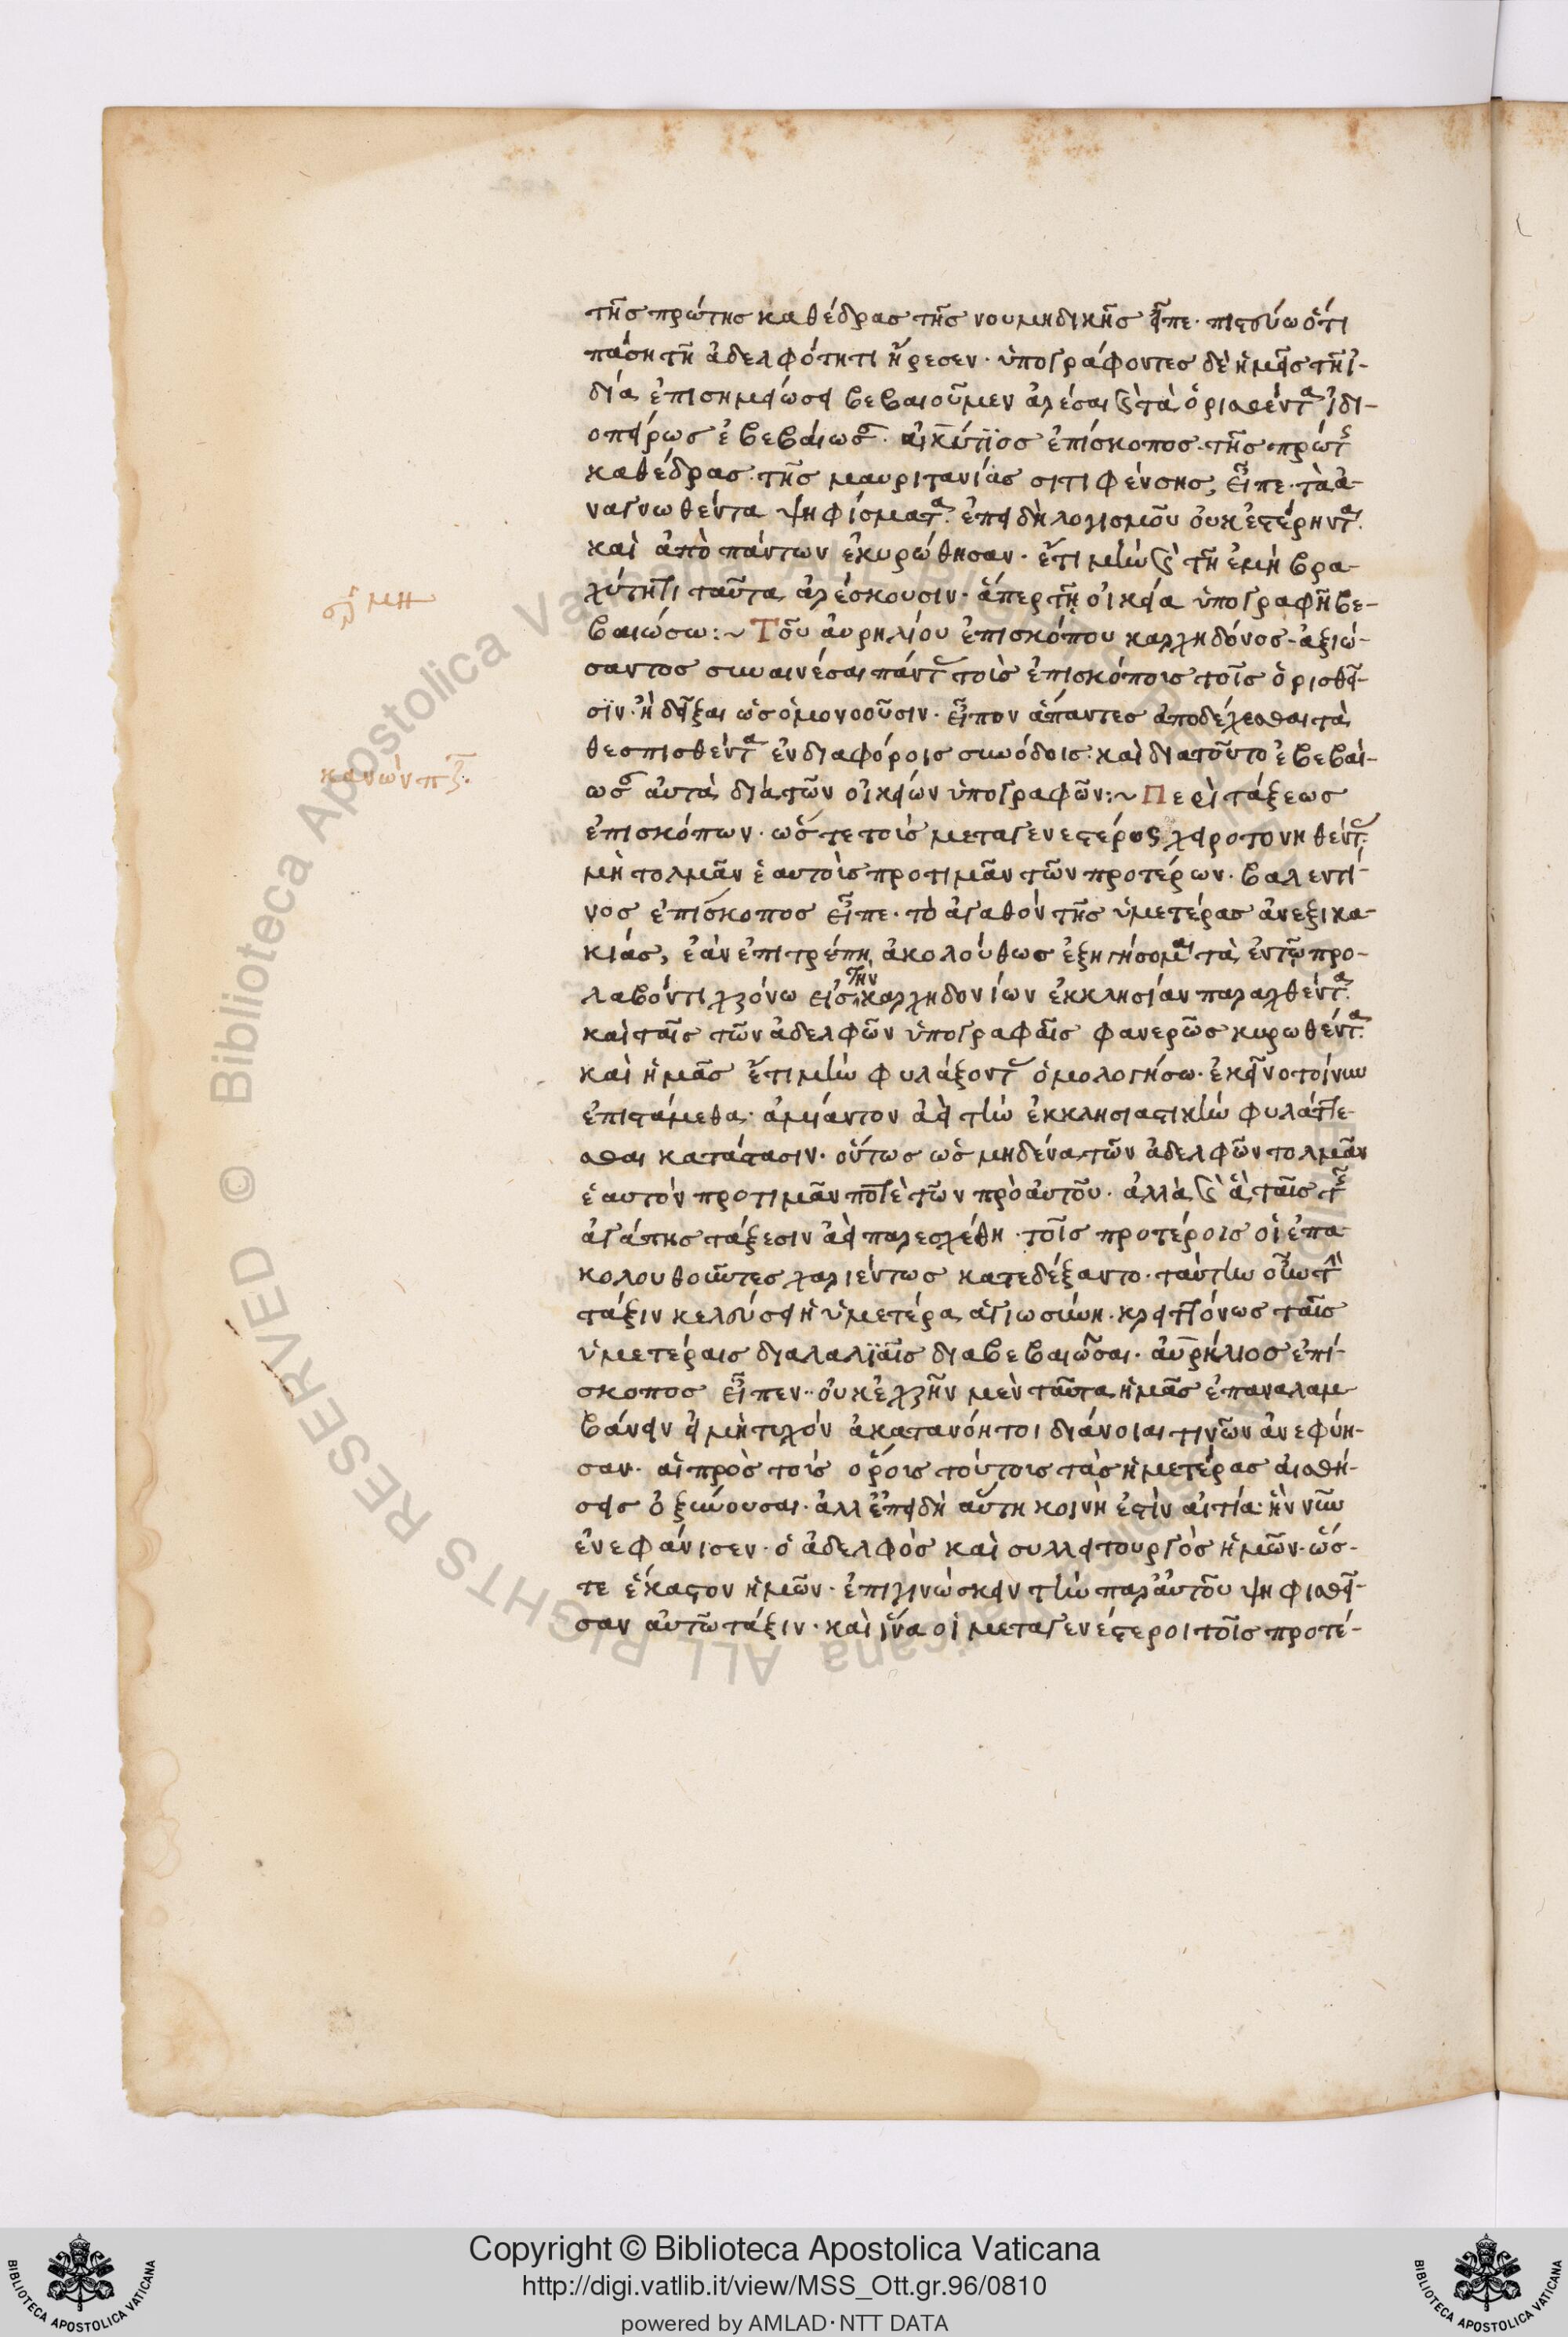 τῆς πρώτης καθέδρας τῆς νουμηδικῆς εἶπε· πιστεύω ὅτι
πάση τῆ ἀδελφότητι ἤρεσεν· ὑπογράφοντες δὲ ἡμεῖς τῆ ἰ-
δία ἐπισημειώσει βεβαιοῦμεν ἀρέσαι καὶ τὰ ὁρισθέντα ἰδι-
οπείρως ἐβεβαίωσε ἐπίσκοπος τῆς πρώτης
καθέδρας τῆς μαυριτανίας σιτιφένσης, εἶπε· τὰ ἀ-
ναγνωθέντα ψηφίσματα· ἐπειδὴ λογισμοῦ οὐκ ἐστέρηντα
καὶ ἀπὸ πάντων ἐκυρώθησαν· ἔτι μὴν καὶ τῆ ἐμῆ βρα-
χύτητι ταῦτα ἀρέσκουσιν· ἅπερ τῆ οἰκεία ὑπογραφῆ βε-
βαιώσω:~ Τοῦ αὐρηλίου ἐπισκόπου καρχηδόνος ἀξιώ-
σαντος συναινέσαι πάντας τοὺς ἐπισκόπους τοῖς ὁρισθεῖ-
σϊν· ἢ δεῖξαι ὡς ὁμονοοῦσιν· εἶπον ἅπαντες ἀποδέχεσθαι τὰ
θεσπισθέντα ἐν διαφόροις συνόδοις· καὶ διὰ τοῦτο ἐβεβαί-
ωσαν αὐτὰ διὰ τῶν οἰκείων ὑπογραφῶν:~ Περὶ τάξεως
ἐπισκόπων· ὥστε τοὺς μεταγενεστέρους χειροτονηθέντας
μὴ τολμᾶν ἑαυτοὺς προτιμᾶν τῶν προτέρων· βαλεντί-
νος ἐπίσκοπος εἶπε· τὸ ἀγαθὸν τῆς ὑμετέρας ἀνεξικα-
κίας, ἐὰν ἐπιτρέπη, ἀκολούθως ἐξηγήσομαι τὰ ἐν τῷ προ-
λαβόντι χρόνω εἰς τὴν καρχηδονίων ἐκκλησίαν παραχθέντα·
καὶ ταῖς τῶν ἀδελφῶν ὑπογραφαῖς φανερῶς κυρωθέντα·
καὶ ἡμᾶς ἔτι μὴν φυλάξοντας ὁμολογήσω· ἐκεῖνο τοίνυν
ἐπιστάμεθα· ἀμίαντον ἀεὶ τὴν ἐκκλησιαστικὴν φυλάττε-
σθαι κατάστασιν· οὕτως ὡς μηδένα τῶν ἀδελφῶν τολμᾶν
ἑαυτὸν προτιμᾶν ποτὲ τῶν πρὸ αὐτοῦ· ἀλλὰ καὶ ἃ ταῖς τῆς
ἀγάπης τάξεσιν ἀεὶ παρεσχέθη· τοῖς προτέροις οἱ ἐπα
κολουθοῦντες χαριέντως κατεδέξαντο· ταύτην οὖν τὴν
τάξιν κελεύσει ἡ ὑμετέρα ἁγιωσύνη· κρειττόνως ταῖς
ὑμετέραις διαλαλϊαῖς διαβεβαιῶσαι· αὐρήλιος ἐπί-
σκοπος εἶπεν· οὐκ ἐχρῆν μὲν ταῦτα ἡμᾶς ἐπαναλαμ
βάνειν εἰ μὴ τυχὸν ἀκατανόητοι διάνοιαι τινῶν ἀνεφύη-
σαν· αἱ πρὸς τοὺς ὅρους τούτους τὰς ἡμετέρας αἰσθή-
σεις ὀξύνουσαι· ἀλλ' ἐπειδὴ αὕτη κοινὴ ἐστὶν αἰτία· ἣν νῦν
ἐνεφάνισεν· ὁ ἀδελφὸς καὶ συλλειτουργὸς ἡμῶν· ὥσ-
τε ἕκαστον ἡμῶν· ἐπιγινώσκειν τὴν παρ' αὐτοῦ ψηφισθεῖ-
σαν αὐτῶ τάξιν· καὶ ἵνα οἱ μεταγενέστεροι τοῖς προτέ-
κανὼν πς
Copyright © Biblioteca Apostolica Vaticana
http://digi.vatlib.it/view/MSS_Ott.gr.96/0810
powered by AMLAD·NTT DATA
© Biblioteca Apostolica Vaticana ALL RIGHTS RESERVED
BIBLIOTECA APOSTOLICA VATICANA
BIBLIOTECA APOSTOLICA VATICANA